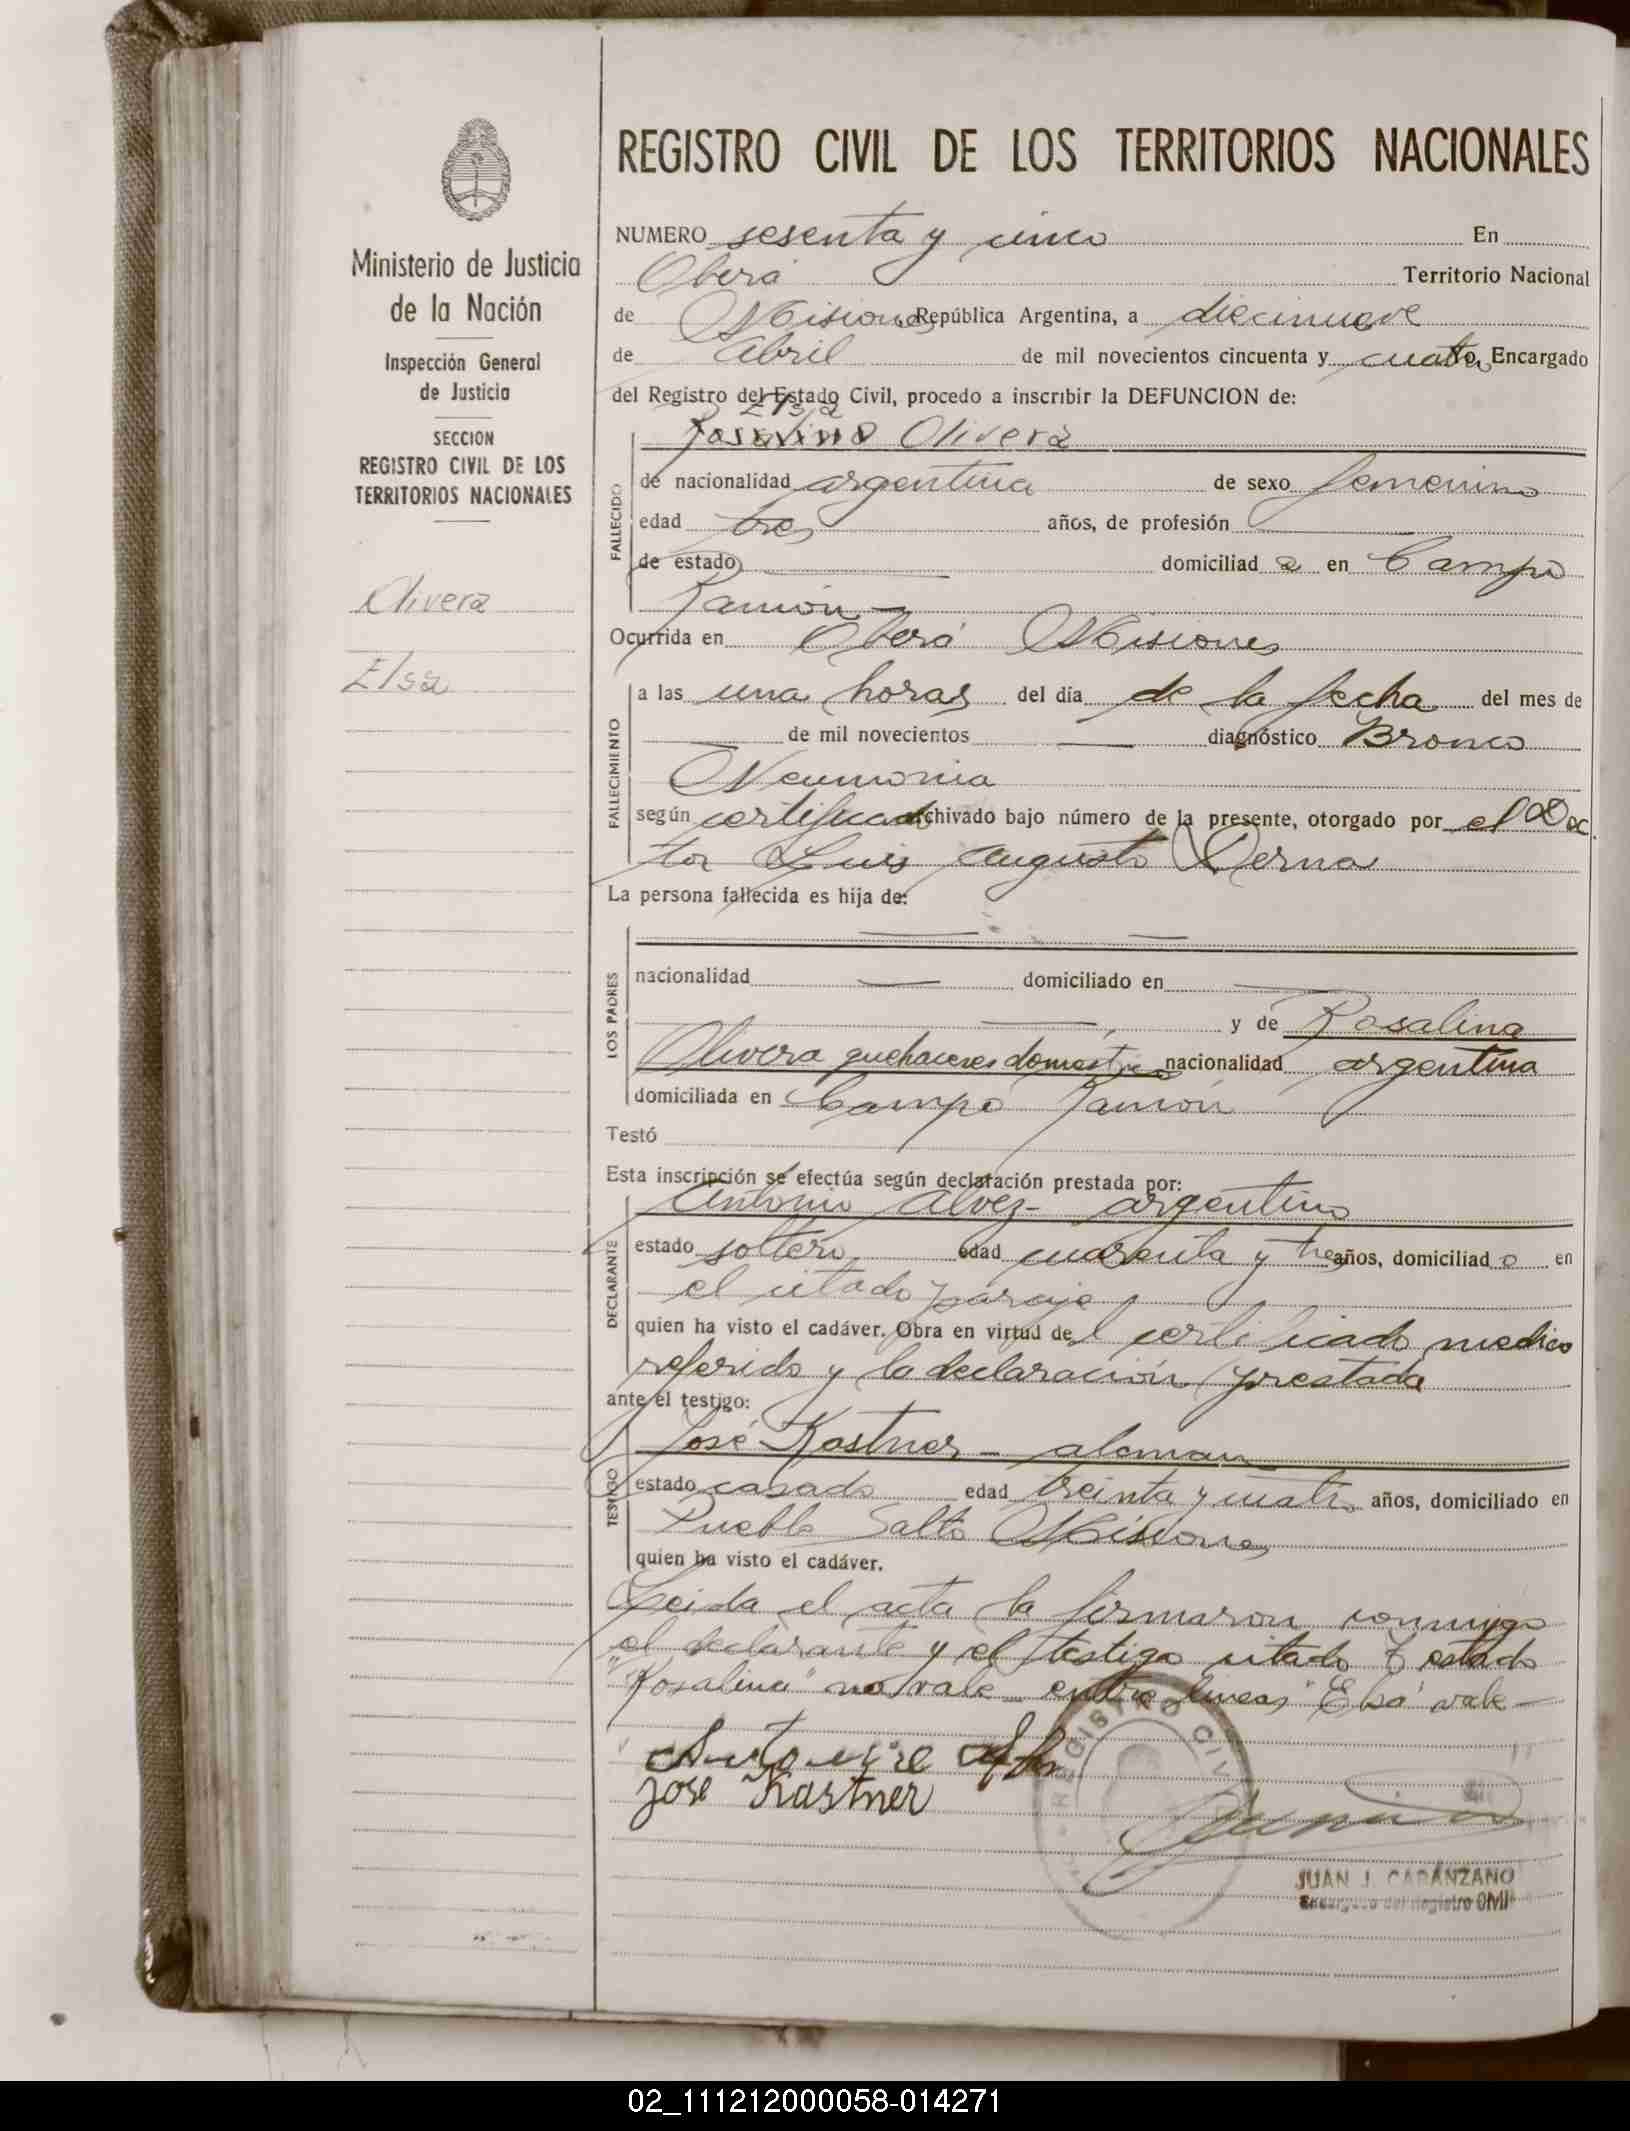 REGISTRO CIVIL DE LOS TERRITORIOS NACIONALES
Ministerio de Justicia
de la Nación
Inspección General
de Justicia
SECCION
REGISTRO CIVIL DE LOS
TERRITORIOS NACIONALES
Olivera
Elsa
NUMERO sesenta y cinco En
Oberá Territorio Nacional
de Misiones República Argentina, a diecinueve
de Abril de mil novecientos cincuenta y cuatro Yo, Encargado
del Registro del Estado Civil, procedo a inscribir la DEFUNCION de:
Elsa
Olivera
FALLECIDO
de nacionalidad argentina de sexo femenino
edad tres años, de profesión
de estado domiciliad a en Campo
Ramón
Ocurrida en Oberá Misiones
FALLECIMIENTO
a las una horas del día de la fecha del mes de
de mil novecientos diagnóstico Bronco
Neumonia
según certificado archivado bajo número de la presente, otorgado por el Doc
tor Luis Augusto Derna
La persona fallecida es hija de:
LOS PADRES
nacionalidad domiciliado en
y de Rosalina
Olivera quehaceres domesticos nacionalidad argentina
domiciliada en Campo Ramón
Testó
Esta inscripción se efectúa según declaración prestada por:
Antonio Alvez - argentino
DECLARANTE
estado soltero edad cuarenta y tres años, domiciliad o en
el citado paraje
quien ha visto el cadáver. Obra en virtud del certificado medico
referido y la declaración prestada
ante el testigo:
José Kastner - aleman
TESTIGO
estado casado edad treinta y cuatro años, domiciliado en
Pueblo Salto Misiones
quien ha visto el cadáver.
Leida el acta la firmaron conmigo
el declarante y el testigo citado Testado
"Rosalina" no vale entre lineas "Elsa" vale -
José Kastner
REGISTRO CIVIL
JUAN J. CARANZANO
Encargado del Registro Civil
02_111212000058-014271